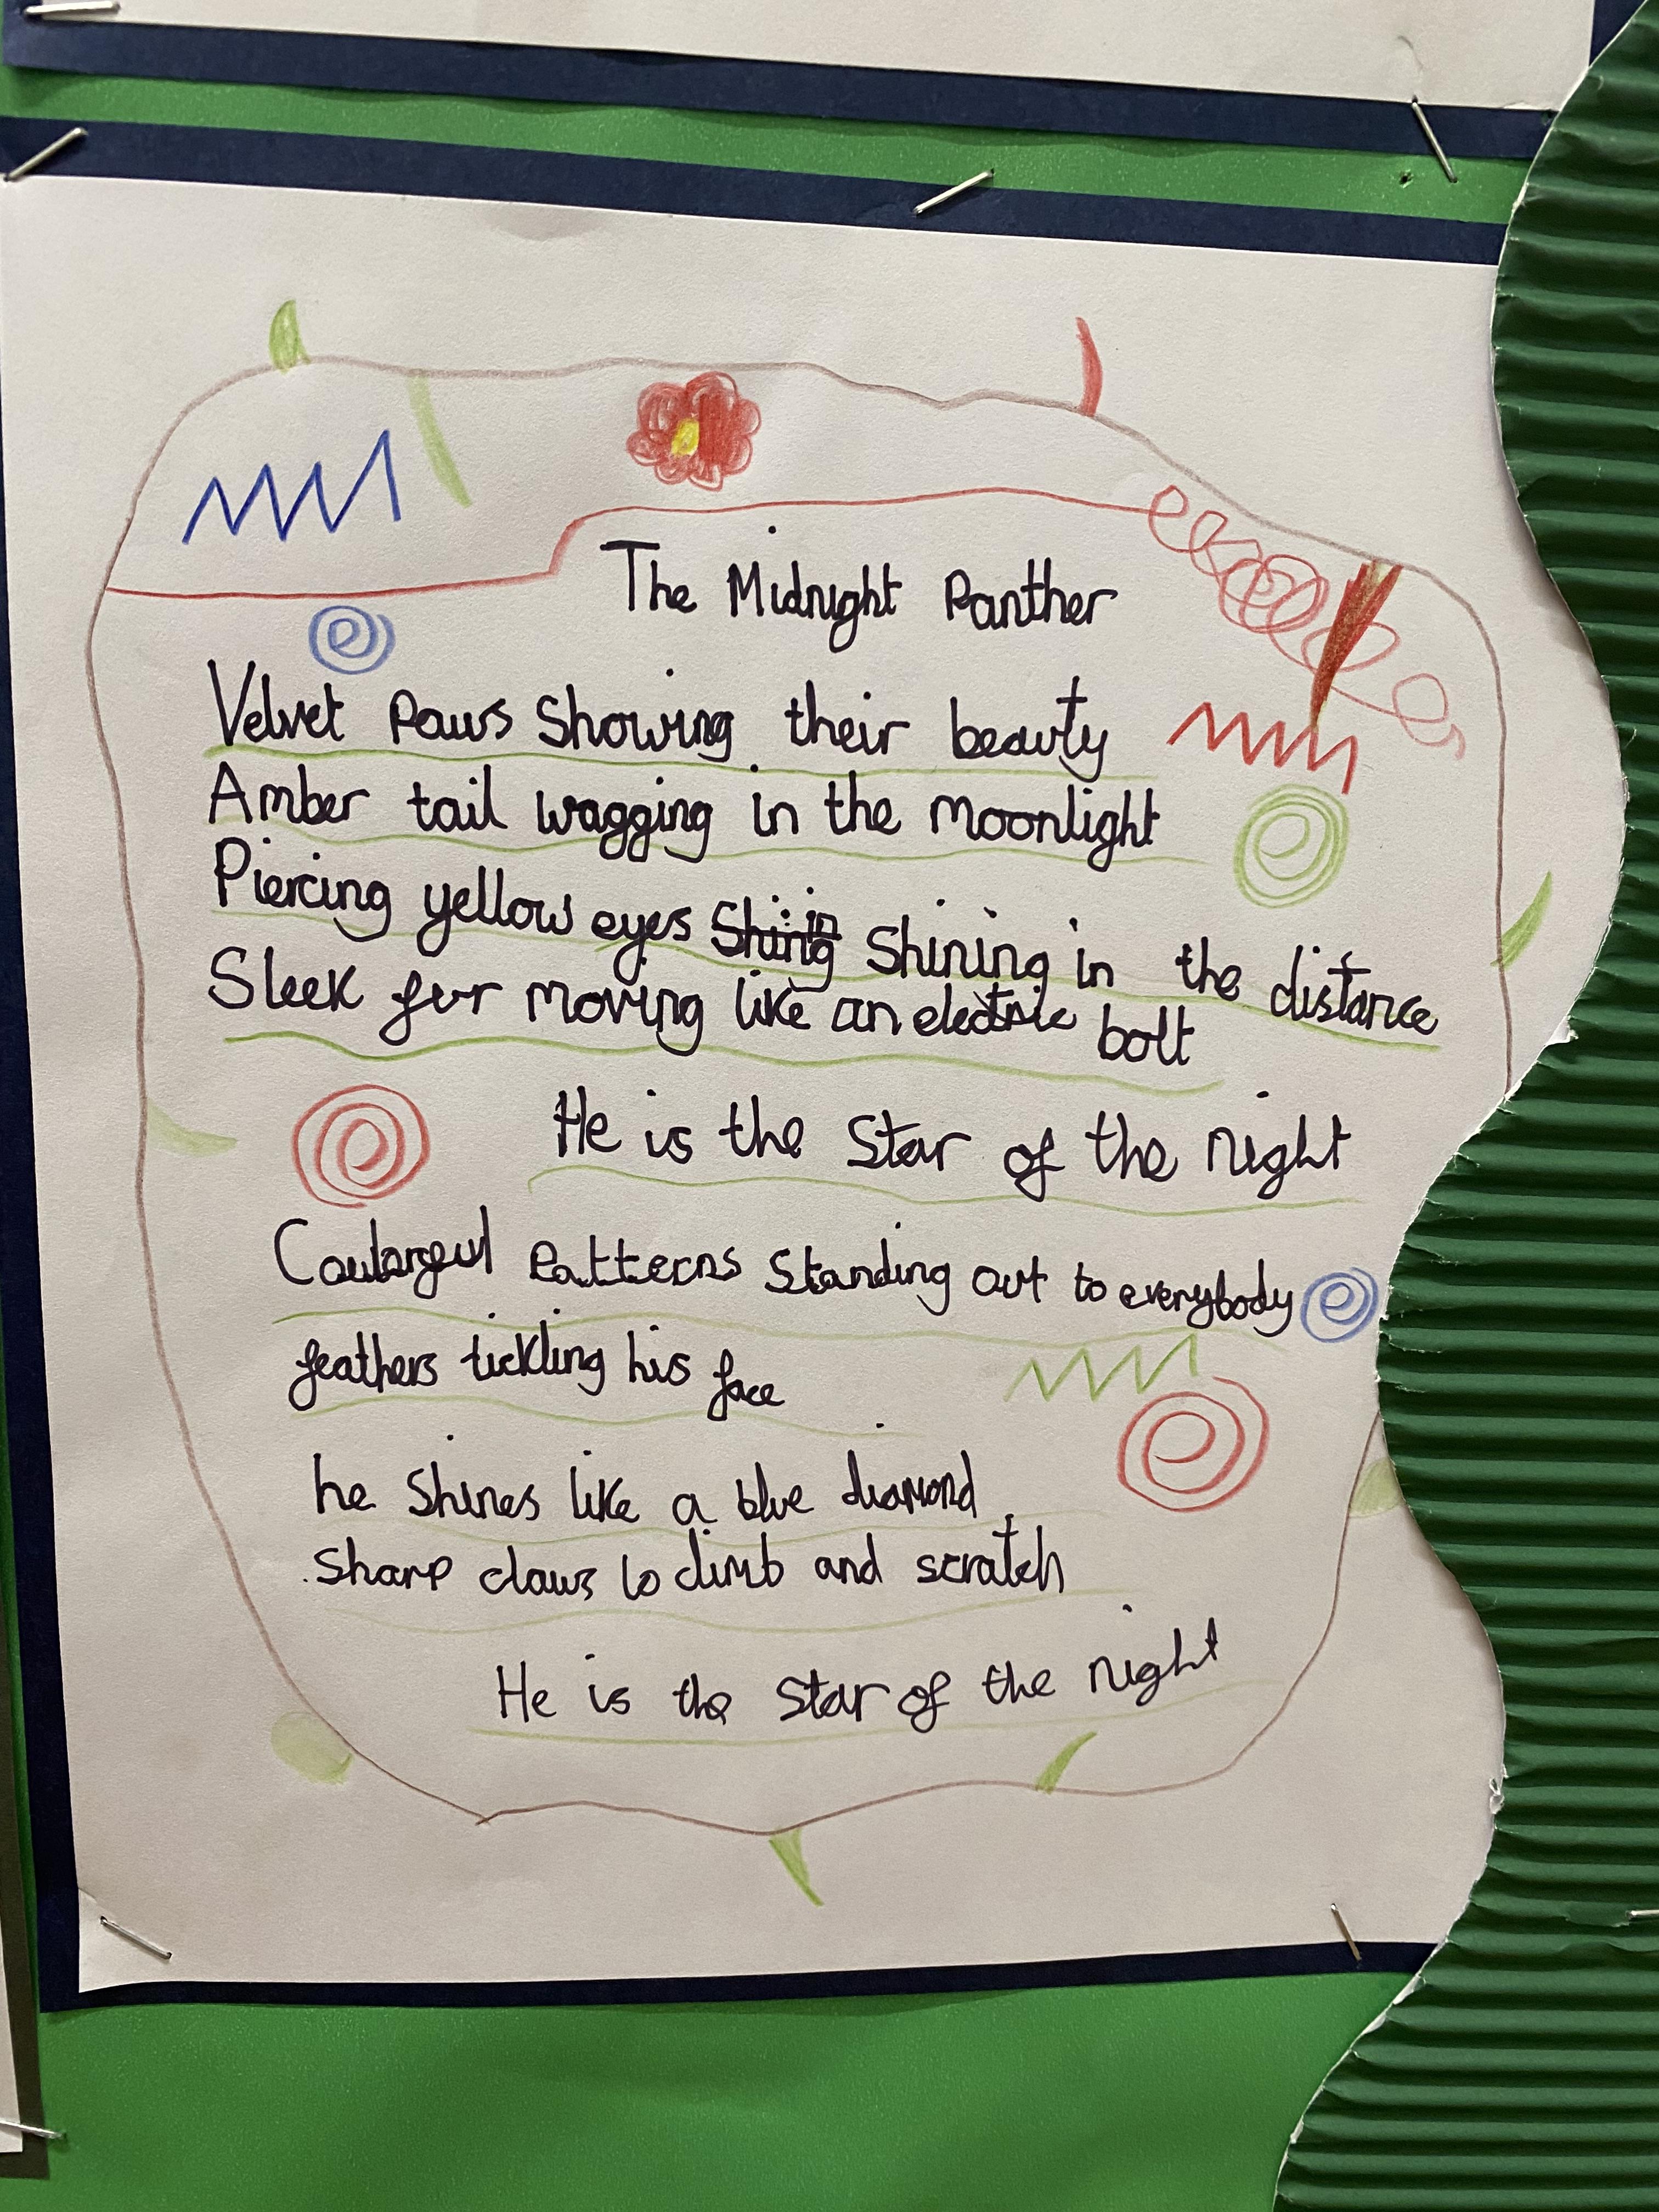 The Midnight Panther
Velvet Paws Showing their beauty
Amber tail wagging in the Moonlight
Piercing yellow eyes Shining in the distance
Sleek fur moving like an electric bolt
He is the Star of the night
Coulorgeul Patterns Standing out to everybody
feathers tickling his face
he Shines like a blue diamond
Sharp claws to climb and scratch
He is the Star of the night